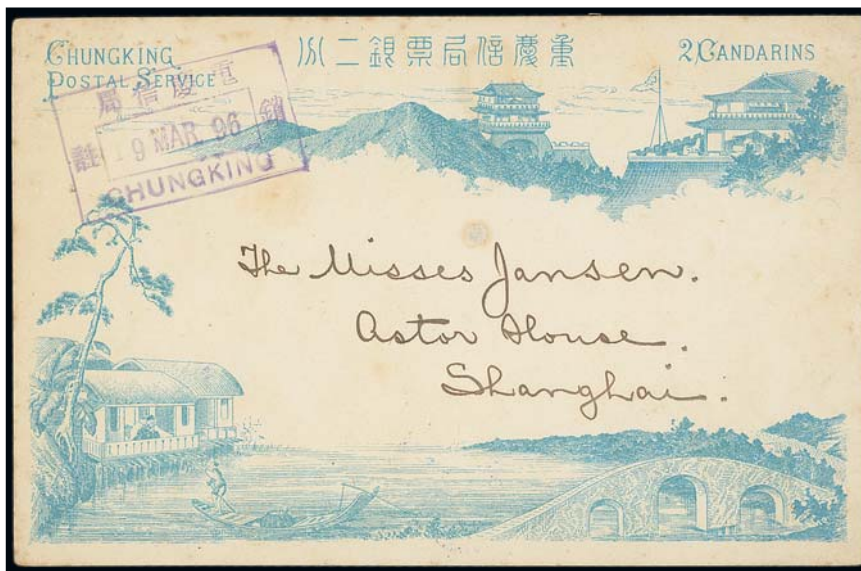 CHUNGKING
POSTAL SERVICE
重慶信局票銀二分
2 CANDARINS
重慶信局
註銷
19 MAR 96
CHUNGKING
The Misses Jansen.
Astor House.
Shanghai.